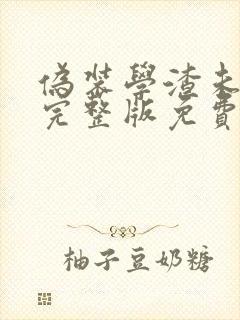 偽裝學渣未
完整版免費
柚子豆奶糖